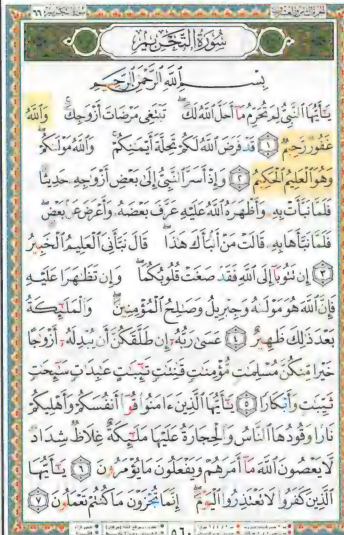 سُورَةُ التَّحْرِيمِ
بِسْمِ اللَّهِ الرَّحْمَٰنِ الرَّحِيمِ
يَٰٓأَيُّهَا النَّبِيُّ لِمَ تُحَرِّمُ مَآ أَحَلَّ اللَّهُ لَكَ ۖ تَبْتَغِي مَرْضَاتَ أَزْوَٰجِكَ ۚ وَاللَّهُ
غَفُورٌ رَّحِيمٌ ١ قَدْ فَرَضَ اللَّهُ لَكُمْ تَحِلَّةَ أَيْمَٰنِكُمْ ۚ وَاللَّهُ مَوْلَىٰكُمْ ۖ
وَهُوَ الْعَلِيمُ الْحَكِيمُ ٢ وَإِذْ أَسَرَّ النَّبِيُّ إِلَىٰ بَعْضِ أَزْوَٰجِهِۦ حَدِيثًا
فَلَمَّا نَبَّأَتْ بِهِۦ وَأَظْهَرَهُ اللَّهُ عَلَيْهِ عَرَّفَ بَعْضَهُۥ وَأَعْرَضَ عَنۢ بَعْضٍ ۖ
فَلَمَّا نَبَّأَهَا بِهِۦ قَالَتْ مَنْ أَنۢبَأَكَ هَٰذَا ۖ قَالَ نَبَّأَنِيَ الْعَلِيمُ الْخَبِيرُ
٣ إِن تَتُوبَآ إِلَى اللَّهِ فَقَدْ صَغَتْ قُلُوبُكُمَا ۖ وَإِن تَظَٰهَرَا عَلَيْهِ
فَإِنَّ اللَّهَ هُوَ مَوْلَىٰهُ وَجِبْرِيلُ وَصَٰلِحُ الْمُؤْمِنِينَ ۖ وَالْمَلَٰٓئِكَةُ
بَعْدَ ذَٰلِكَ ظَهِيرٌ ٤ عَسَىٰ رَبُّهُۥٓ إِن طَلَّقَكُنَّ أَن يُبْدِلَهُۥٓ أَزْوَٰجًا
خَيْرًا مِّنكُنَّ مُسْلِمَٰتٍ مُّؤْمِنَٰتٍ قَٰنِتَٰتٍ تَٰٓئِبَٰتٍ عَٰبِدَٰتٍ سَٰٓئِحَٰتٍ
ثَيِّبَٰتٍ وَأَبْكَارًا ٥ يَٰٓأَيُّهَا الَّذِينَ ءَامَنُوا قُوٓا أَنفُسَكُمْ وَأَهْلِيكُمْ
نَارًا وَقُودُهَا النَّاسُ وَالْحِجَارَةُ عَلَيْهَا مَلَٰٓئِكَةٌ غِلَاظٌ شِدَادٌ
لَّا يَعْصُونَ اللَّهَ مَآ أَمَرَهُمْ وَيَفْعَلُونَ مَا يُؤْمَرُونَ ٦ يَٰٓأَيُّهَا
الَّذِينَ كَفَرُوا لَا تَعْتَذِرُوا الْيَوْمَ ۖ إِنَّمَا تُجْزَوْنَ مَا كُنتُمْ تَعْمَلُونَ ٧
٥٦٠